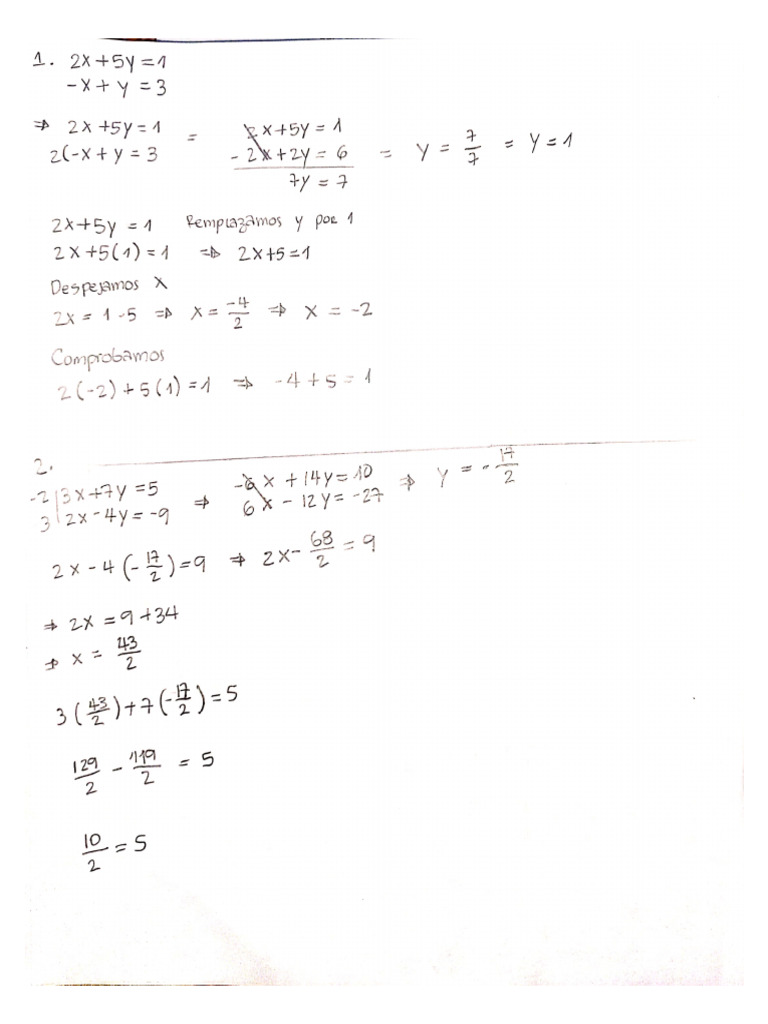 1. 2x+5y=1
-x+ y = 3
⇒ 2x+5y=1 = 2x+5y= 1
2(-x+y=3 - 2x+2y= 6 = y = 7/7 = y=1
7y = 7
2x+5y = 1 Remplazamos y por 1
2x+5(1)=1 ⇒ 2x+5=1
Despejamos x
2x= 1-5 ⇒ x= -4/2 ⇒ x = -2
Comprobamos
2(-2)+5(1)=1 ⇒ -4+5=1
2.
-2|3x+7y=5 ⇒ -6x+14y=10 ⇒ y = -17/2
3|2x-4y=-9 6x-12y=-27
2x-4(-17/2)=9 ⇒ 2x-68/2=9
⇒ 2x=9+34
⇒ x= 43/2
3(43/2)+7(-17/2)=5
129/2 - 119/2 = 5
10/2=5